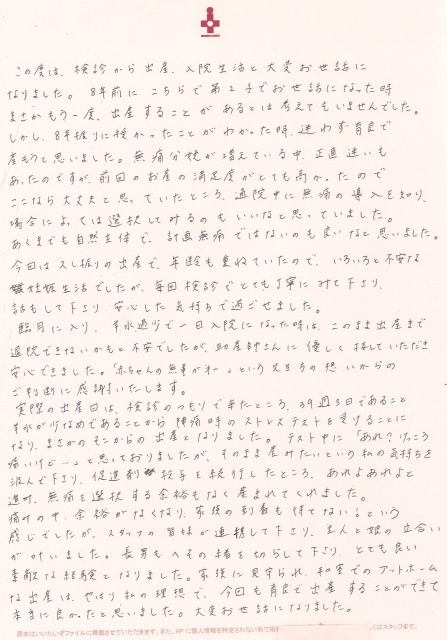 この度は、検診から出産、入院生活と大変お世話に
なりました。8年前にこちらで第2子でお世話になった時
まさかもう一度、出産することがあるとは考えてもいませんでした。
しかし、8年振りに授かったことがわかった時、迷わず育良で
産もうと思いました。無痛分娩が増えている中、正直迷いも
あったのですが、前回のお産の満足度がとても高かったので
ここなら大丈夫と思っていたところ、通院中に無痛の導入を知り、
場合によっては選択してみるのもいいなと思っていました。
あくまでも自然主体で、計画無痛ではないのも良いなと思いました。
今回は久し振りの出産で、年齢も重ねていたので、いろいろと不安な
妊娠生活でしたが、毎回検診でとても丁寧にみて下さり、
話もして下さり、安心した気持ちで過ごせました。
臨月に入り、羊水過少で一日入院になった時は、このまま出産まで
退院できないかもと不安でしたが、助産師さんに優しく接していただき
安心できました。「赤ちゃんの無事が第一」という先生方の想いからの
ご判断に感謝いたします。
実際の出産日は、検診のつもりで来たところ、39週3日であること
羊水が少なめであることから陣痛時のストレステストを受けることに
なり、まさかのそこからの出産となりました。テスト中に「あれ?けっこう
痛いけど…」と思っておりましたが、そのまま産みたいという私の気持ちを
汲んで下さり、促進剤投与を続行したところ、あれよあれよと
進み、無痛を選択する余裕もなく産まれてくれました。
痛みの中、余裕がなくなり、家族の到着も待てない!という
感じでしたが、スタッフの皆様が連携して下さり、主人と娘の立合い
がかないました。長男もへその緒を切らして下さり、とても良い
素敵な経験となりました。家族に見守られ、和室でのアットホーム
な出産は、やはり私の理想で、今回も育良で出産することができて
本当に良かったと思いました。大変お世話になりました。
原本はいいたいぞファイルに掲載させていただきます。また、HPに個人情報を特定されない形で掲
くはスタッフまで。